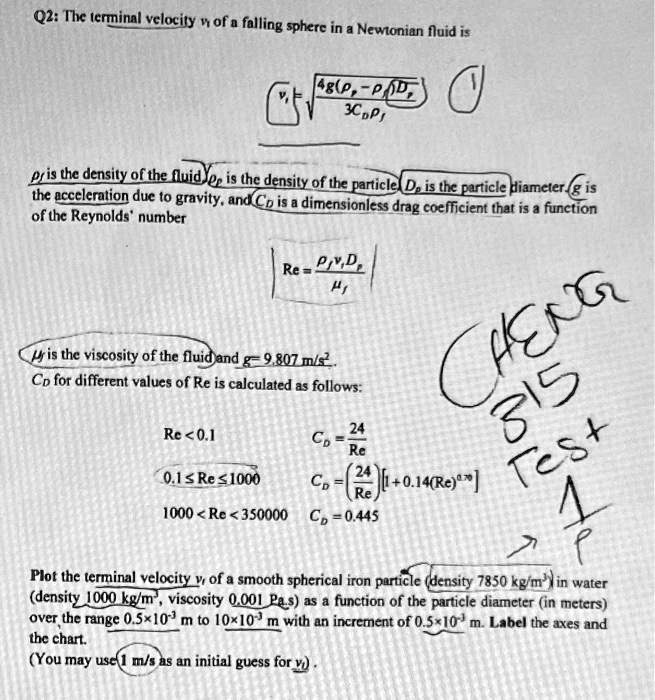 Q2: The terminal velocity vₜ of a falling sphere in a Newtonian fluid is
vₜ = √(4g(ρₚ-ρf)Dₚ / 3C_Dρf) ①
ρf is the density of the fluid, ρₚ is the density of the particle, Dₚ is the particle diameter, g is
the acceleration due to gravity, and C_D is a dimensionless drag coefficient that is a function
of the Reynolds' number
Re = ρf vₜ Dₚ / μf
μf is the viscosity of the fluid and g= 9.807 m/s².
C_D for different values of Re is calculated as follows:
Re < 0.1 C_D = 24/Re
0.1 ≤ Re ≤ 1000 C_D = (24/Re)[1+0.14(Re)^0.70]
1000 < Re < 350000 C_D = 0.445
CHENG
315
Test
1
P
Plot the terminal velocity vₜ of a smooth spherical iron particle (density 7850 kg/m³) in water
(density 1000 kg/m³, viscosity 0.001 Pa.s) as a function of the particle diameter (in meters)
over the range 0.5×10⁻³ m to 10×10⁻³ m with an increment of 0.5×10⁻³ m. Label the axes and
the chart.
(You may use 1 m/s as an initial guess for vₜ) .